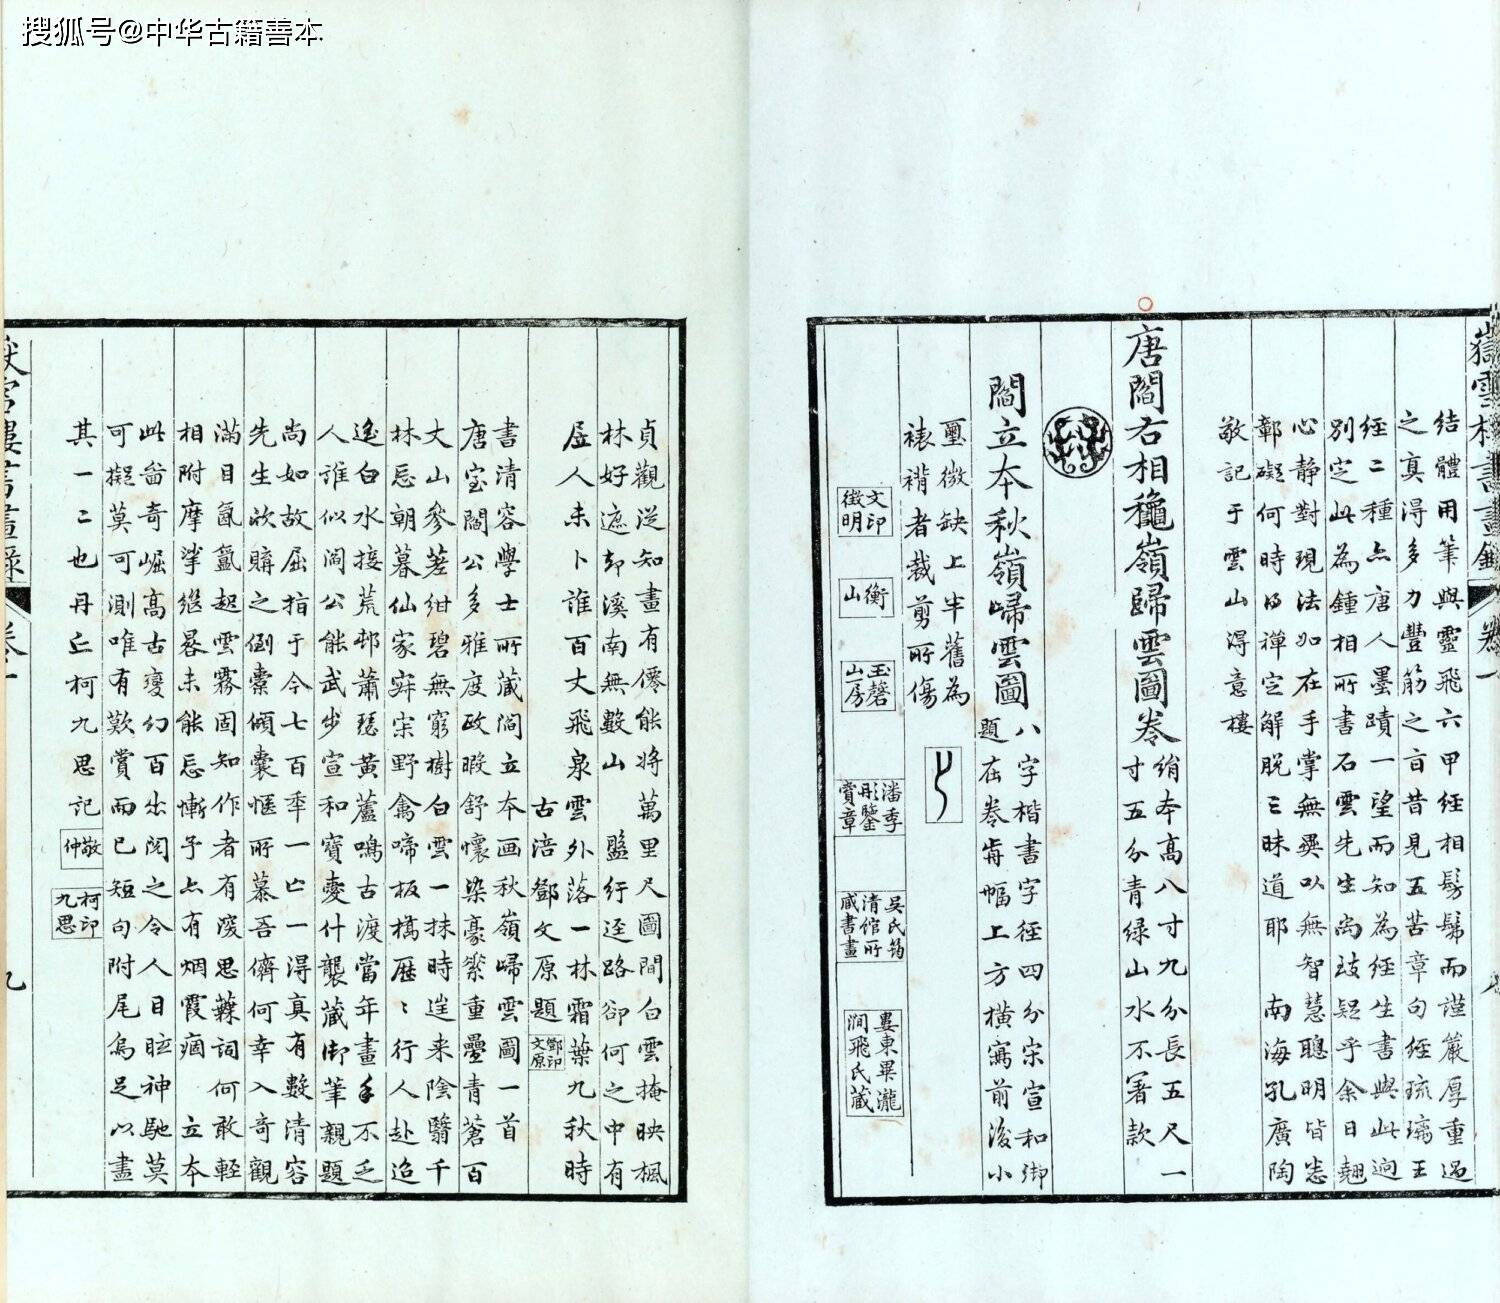 搜狐号@中华古籍善本
嶽雪樓書畫錄 卷一
結體用筆與靈飛六甲經相髣髴而謹嚴厚重過
之真得多力豐筋之旨昔見五苦章句經琉璃王
經二種亦唐人墨蹟一望而知為經生書與此逈
別定此為鍾相所書石雲先生尚致疑乎余日翹
心静對現法如在手掌無異以無智慧聰明皆悉
鄣礙何時得禪定解脫三昧道耶 南海孔廣陶
敬記于雲山得意樓
唐閻右相穐嶺歸雲圖卷 絹本高八寸九分長五尺一
寸五分青綠山水不署款
閻立本秋嶺歸雲圖 八字楷書字徑四分宋宣和御
題在卷前幅上方橫寫前後小
璽微缺上半舊為
裱褙者裁剪所傷
文印
徵明
衡
山
玉磬
山房
潘季
彤鑒
賞章
吳氏筠
清館所
藏書畫
婁東畢瀧
澗飛氏藏
貞觀從知畫有僊能將萬里尺圖間白雲掩映楓
林好遮却溪南無數山 盤行逕路卻何之中有
居人未卜誰百丈飛泉雲外落一林霜葉九秋時
古涪鄧文原題
鄧印
文原
書清容學士所藏閻立本画秋嶺歸雲圖一首
唐室閻公多雅度政暇舒懷染豪縈重疊青蒼百
丈山參差紺碧無窮樹白雲一抹時逞来陰翳千
林忘朝暮仙家寂宋野禽啼板橋歷歷行人赴迨
遙白水接荒邨蕭瑟黃蘆鳴古渡當年畫手不乏
人誰似閻公能武步宣和寶愛什襲藏御筆親題
尚如故屈指于今七百年一亡一得真有數清容
先生欣購之倒橐傾囊愜所慕吾儕何幸入奇觀
滿目氤氳起雲霧固知作者有深思蕪詞何敢輕
相附摩挲继晷未能忘慚予亦有烟霞痼 立本
此啚奇崛高古變幻百出閱之令人目眩神馳莫
可擬莫可測唯有歎賞而已短句附尾烏足以盡
其一二也丹丘柯九思記
敬
仲
柯印
九思
嶽雪樓書畫錄 卷一 九